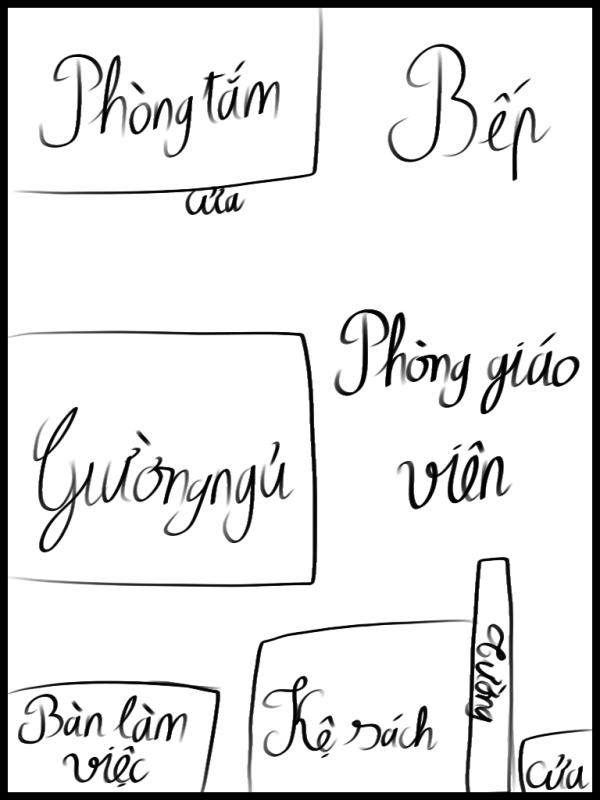 Phòng tắm
Bếp
cửa
Phòng giáo
viên
Gường ngủ
tường
Bàn làm
việc
Kệ sách
cửa